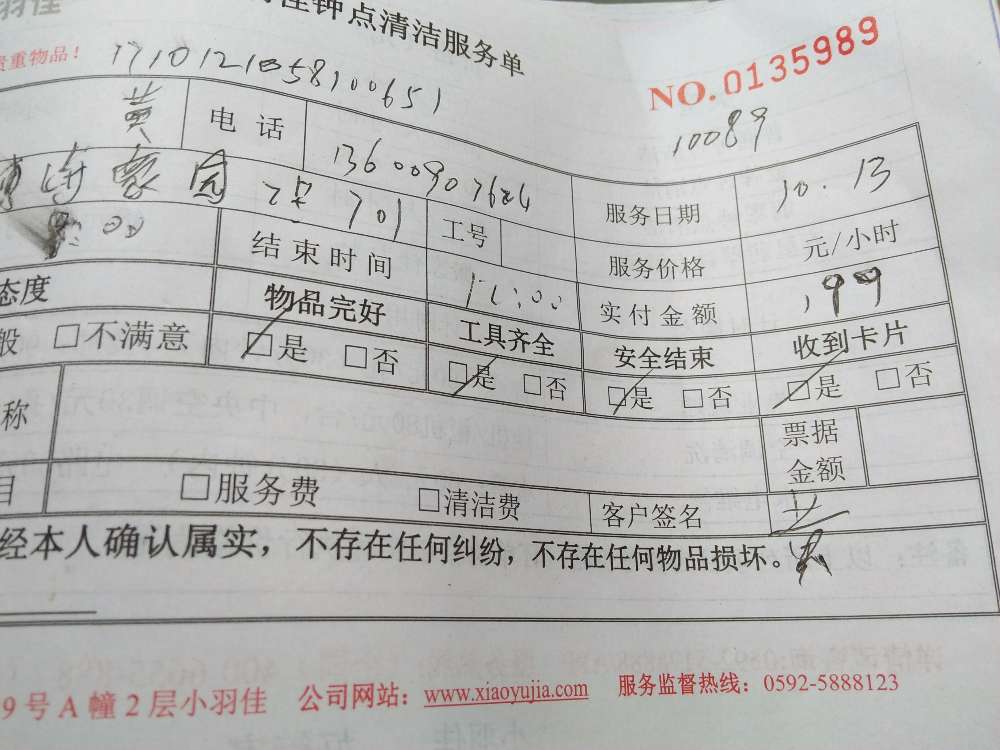 小羽佳
佳钟点清洁服务单
贵重物品！
1710121058100651
NO.0135989
10089
黄 电话 13600907624 服务日期 10.13
園 701 工号 服务价格 元/小时
结束时间 11:00 实付金额 199
态度 物品完好 工具齐全 安全结束 收到卡片
般 □不满意 □是 □否 □是 □否 □是 □否 □是 □否
称 票据金额
目 □服务费 □清洁费 客户签名
经本人确认属实，不存在任何纠纷，不存在任何物品损坏。
9号A幢2层小羽佳 公司网站：www.xiaoyujia.com 服务监督热线：0592-5888123